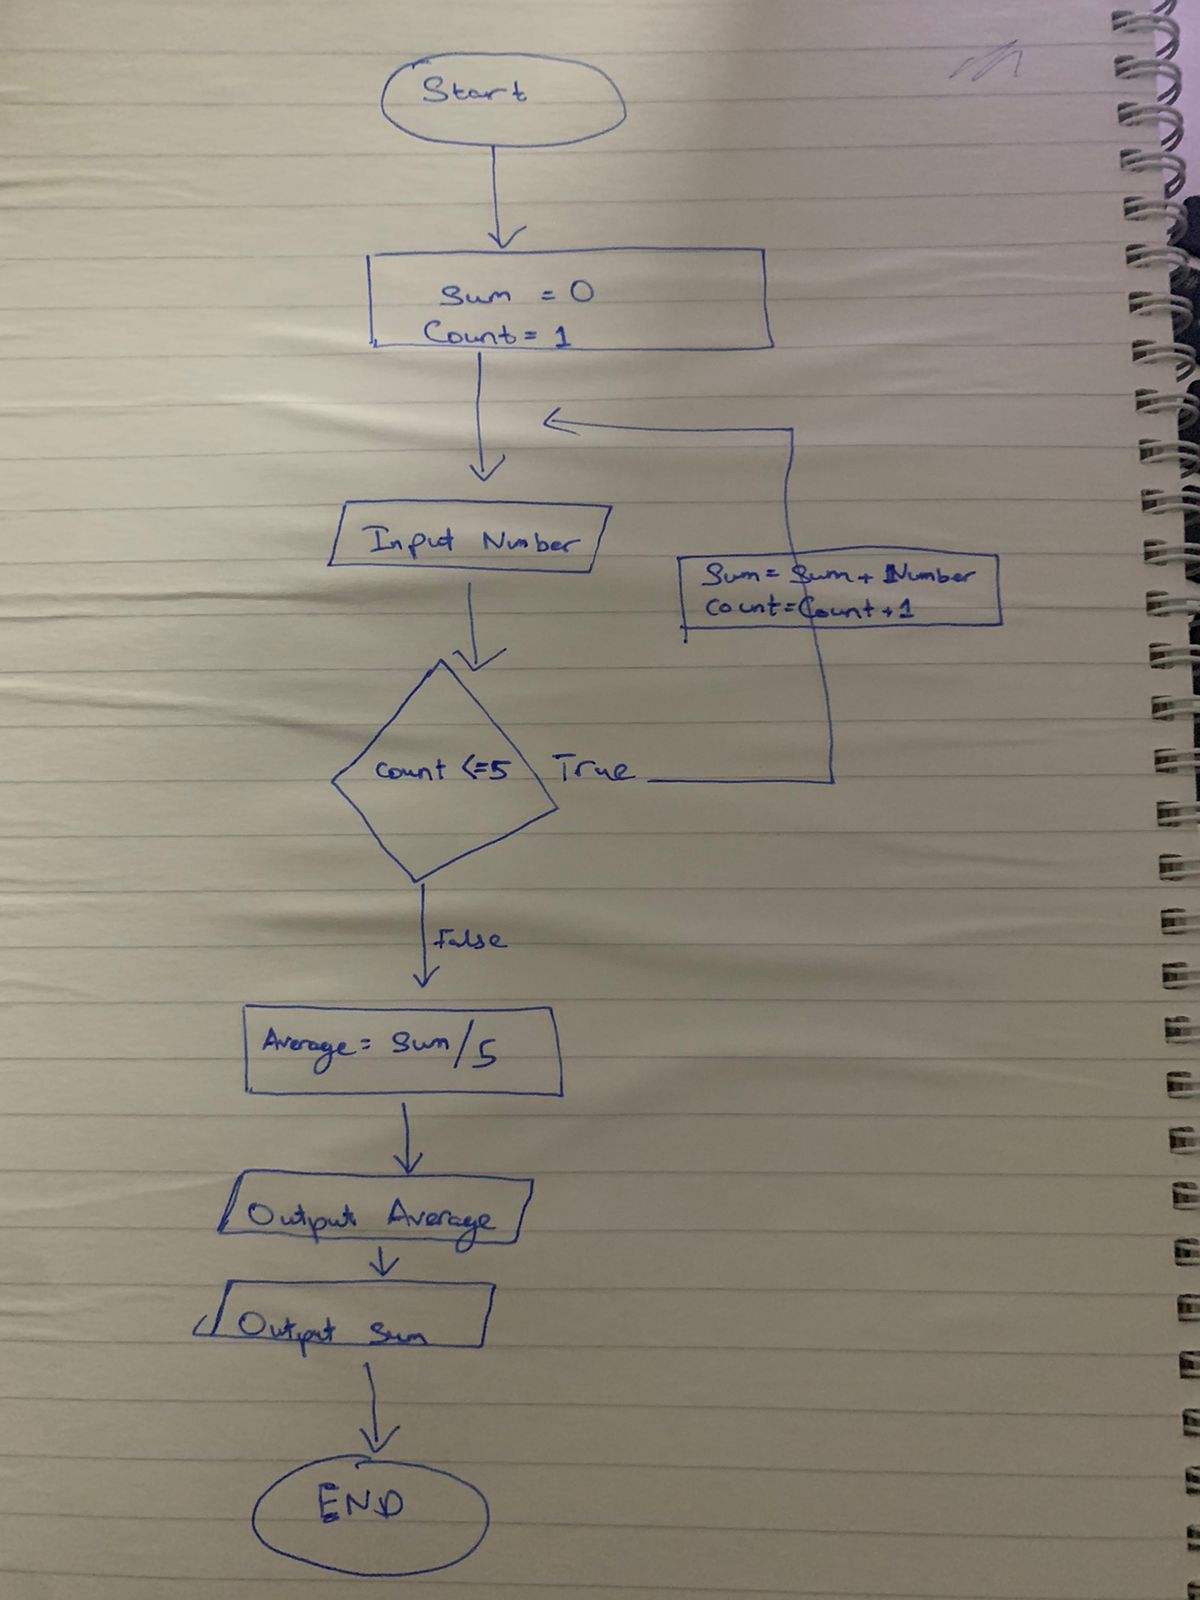 Start
Sum = 0
Count = 1
Input Number
Sum = Sum + Number
Count = Count + 1
Count <=5
True
False
Average = Sum / 5
Output Average
Output Sum
END